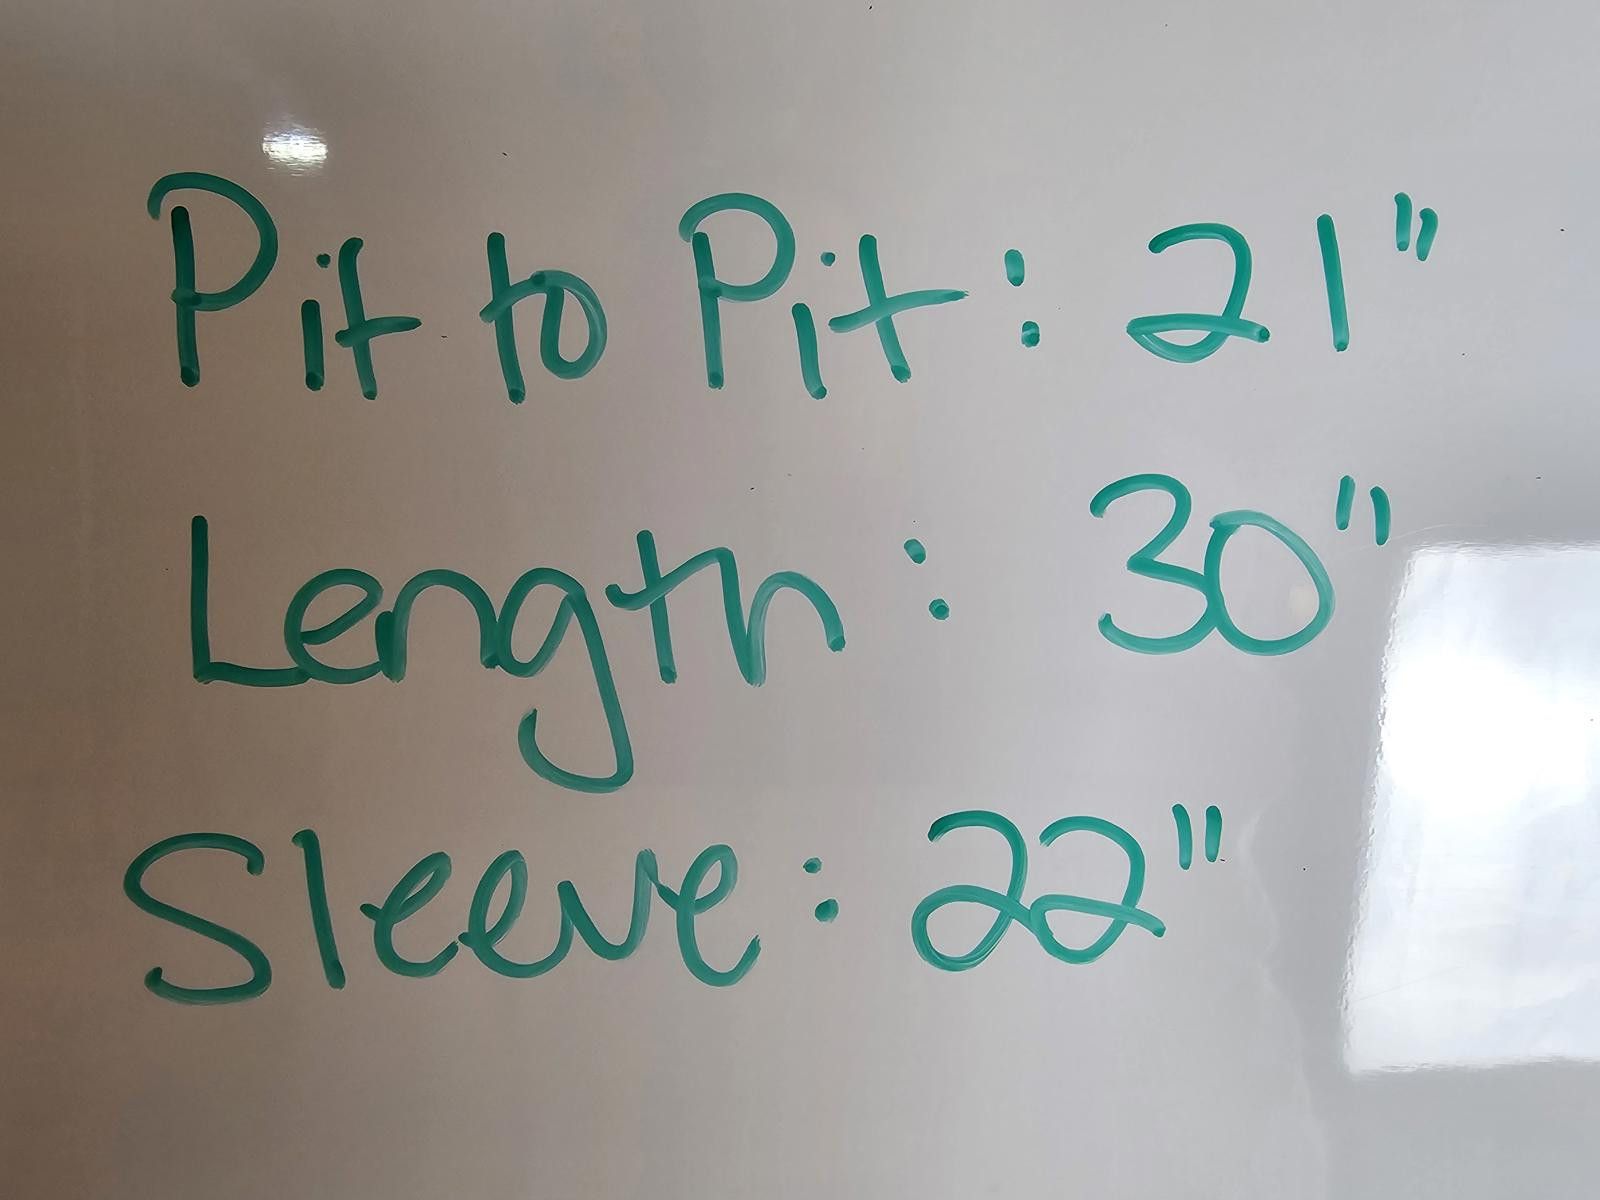 Pit to Pit: 21"
Length: 30"
Sleeve: 22"